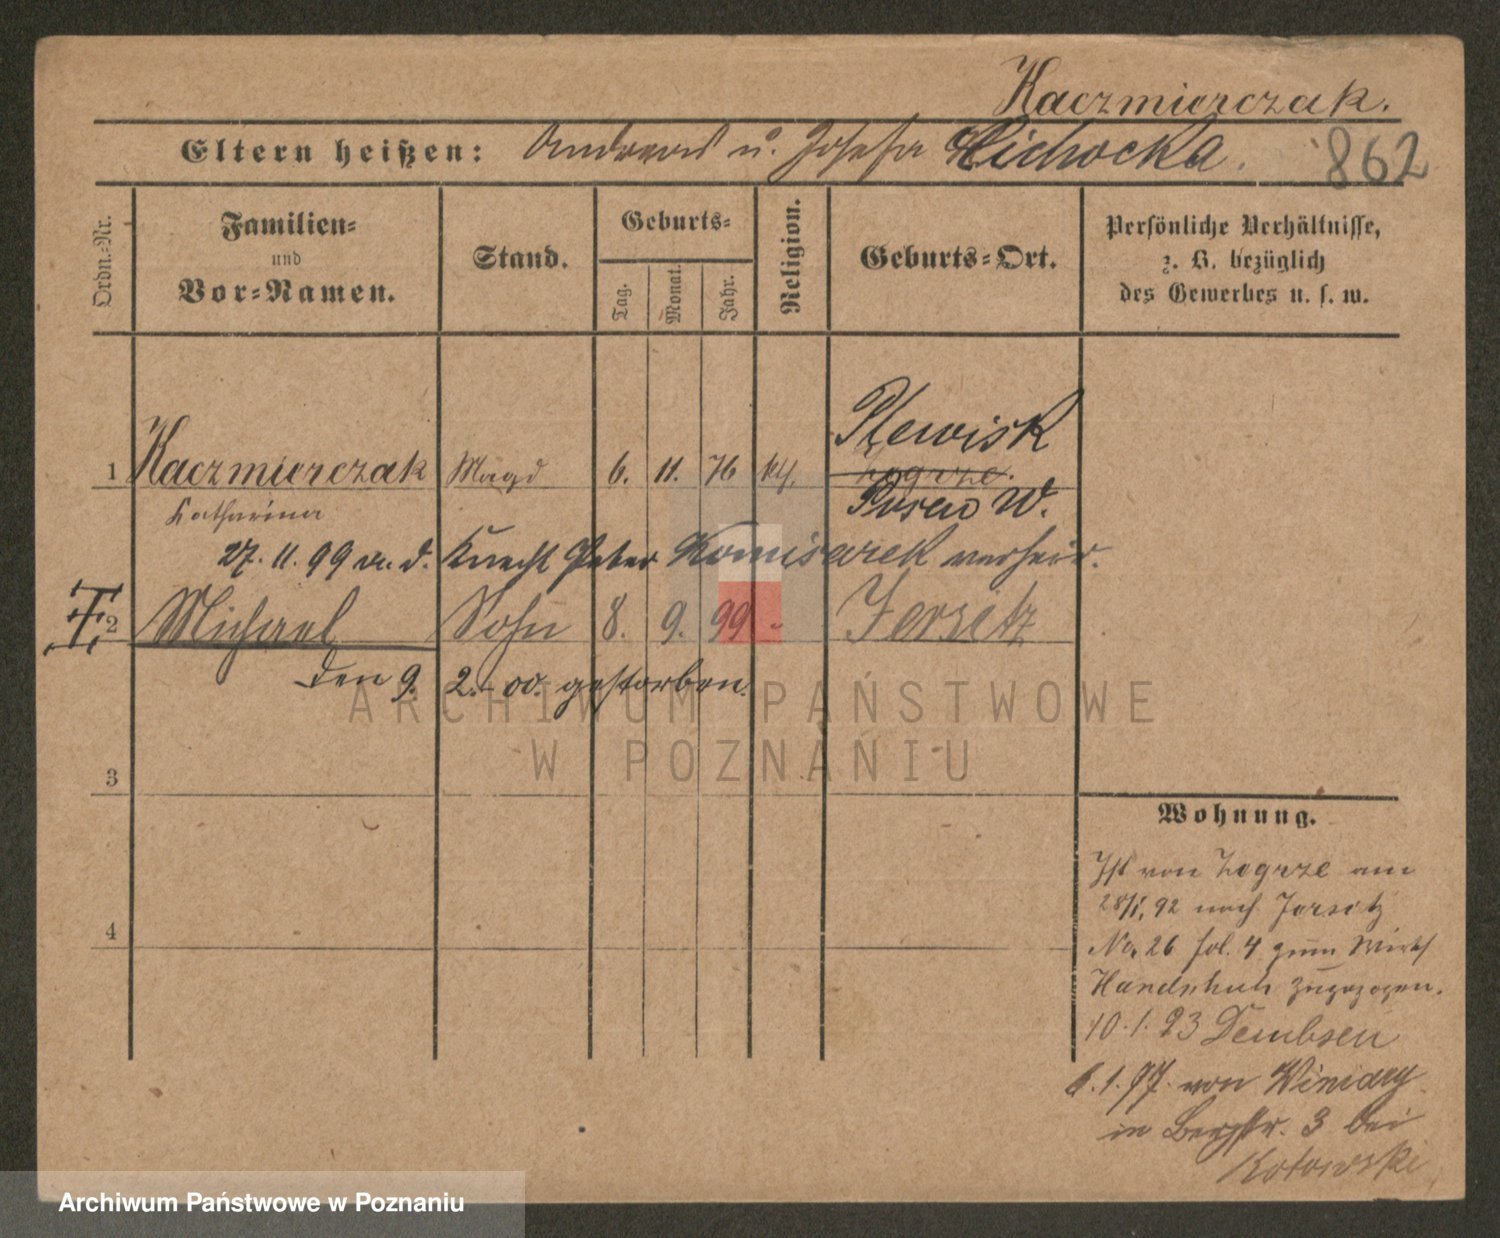 Kaczmierczak.
Eltern heißen: Andreas u. Josefa Cichocka.
862
Ordn.-Nr.
Familien-
und
Vor-Namen.
Stand.
Geburts-
Tag.
Monat.
Jahr.
Religion.
Geburts-Ort.
Persönliche Verhältnisse,
z. B. bezüglich
des Gewerbes u. s. w.
Plewisk
1 Kaczmierczak Magd 6. 11. 76 kth. Zogrze.
Katharina Posen W.
27. 11. 99 m. d. Knecht Peter Komisarek verheir.
2 Michael Sohn 8. 9. 99 - Jersitz
den 9. 2. 00. gestorben.
3
4
Wohnung.
Ist von Zogrze am
28/1. 92 nach Jersitz
No. 26 fol. 4 zum Wirth
Handschuh zugezogen.
10. 1. 93 Dembsen
6. 1. 97. von Winiary
in Bergstr. 3 bei
Kotowski
ARCHIWUM PAŃSTWOWE
W POZNANIU
Archiwum Państwowe w Poznaniu